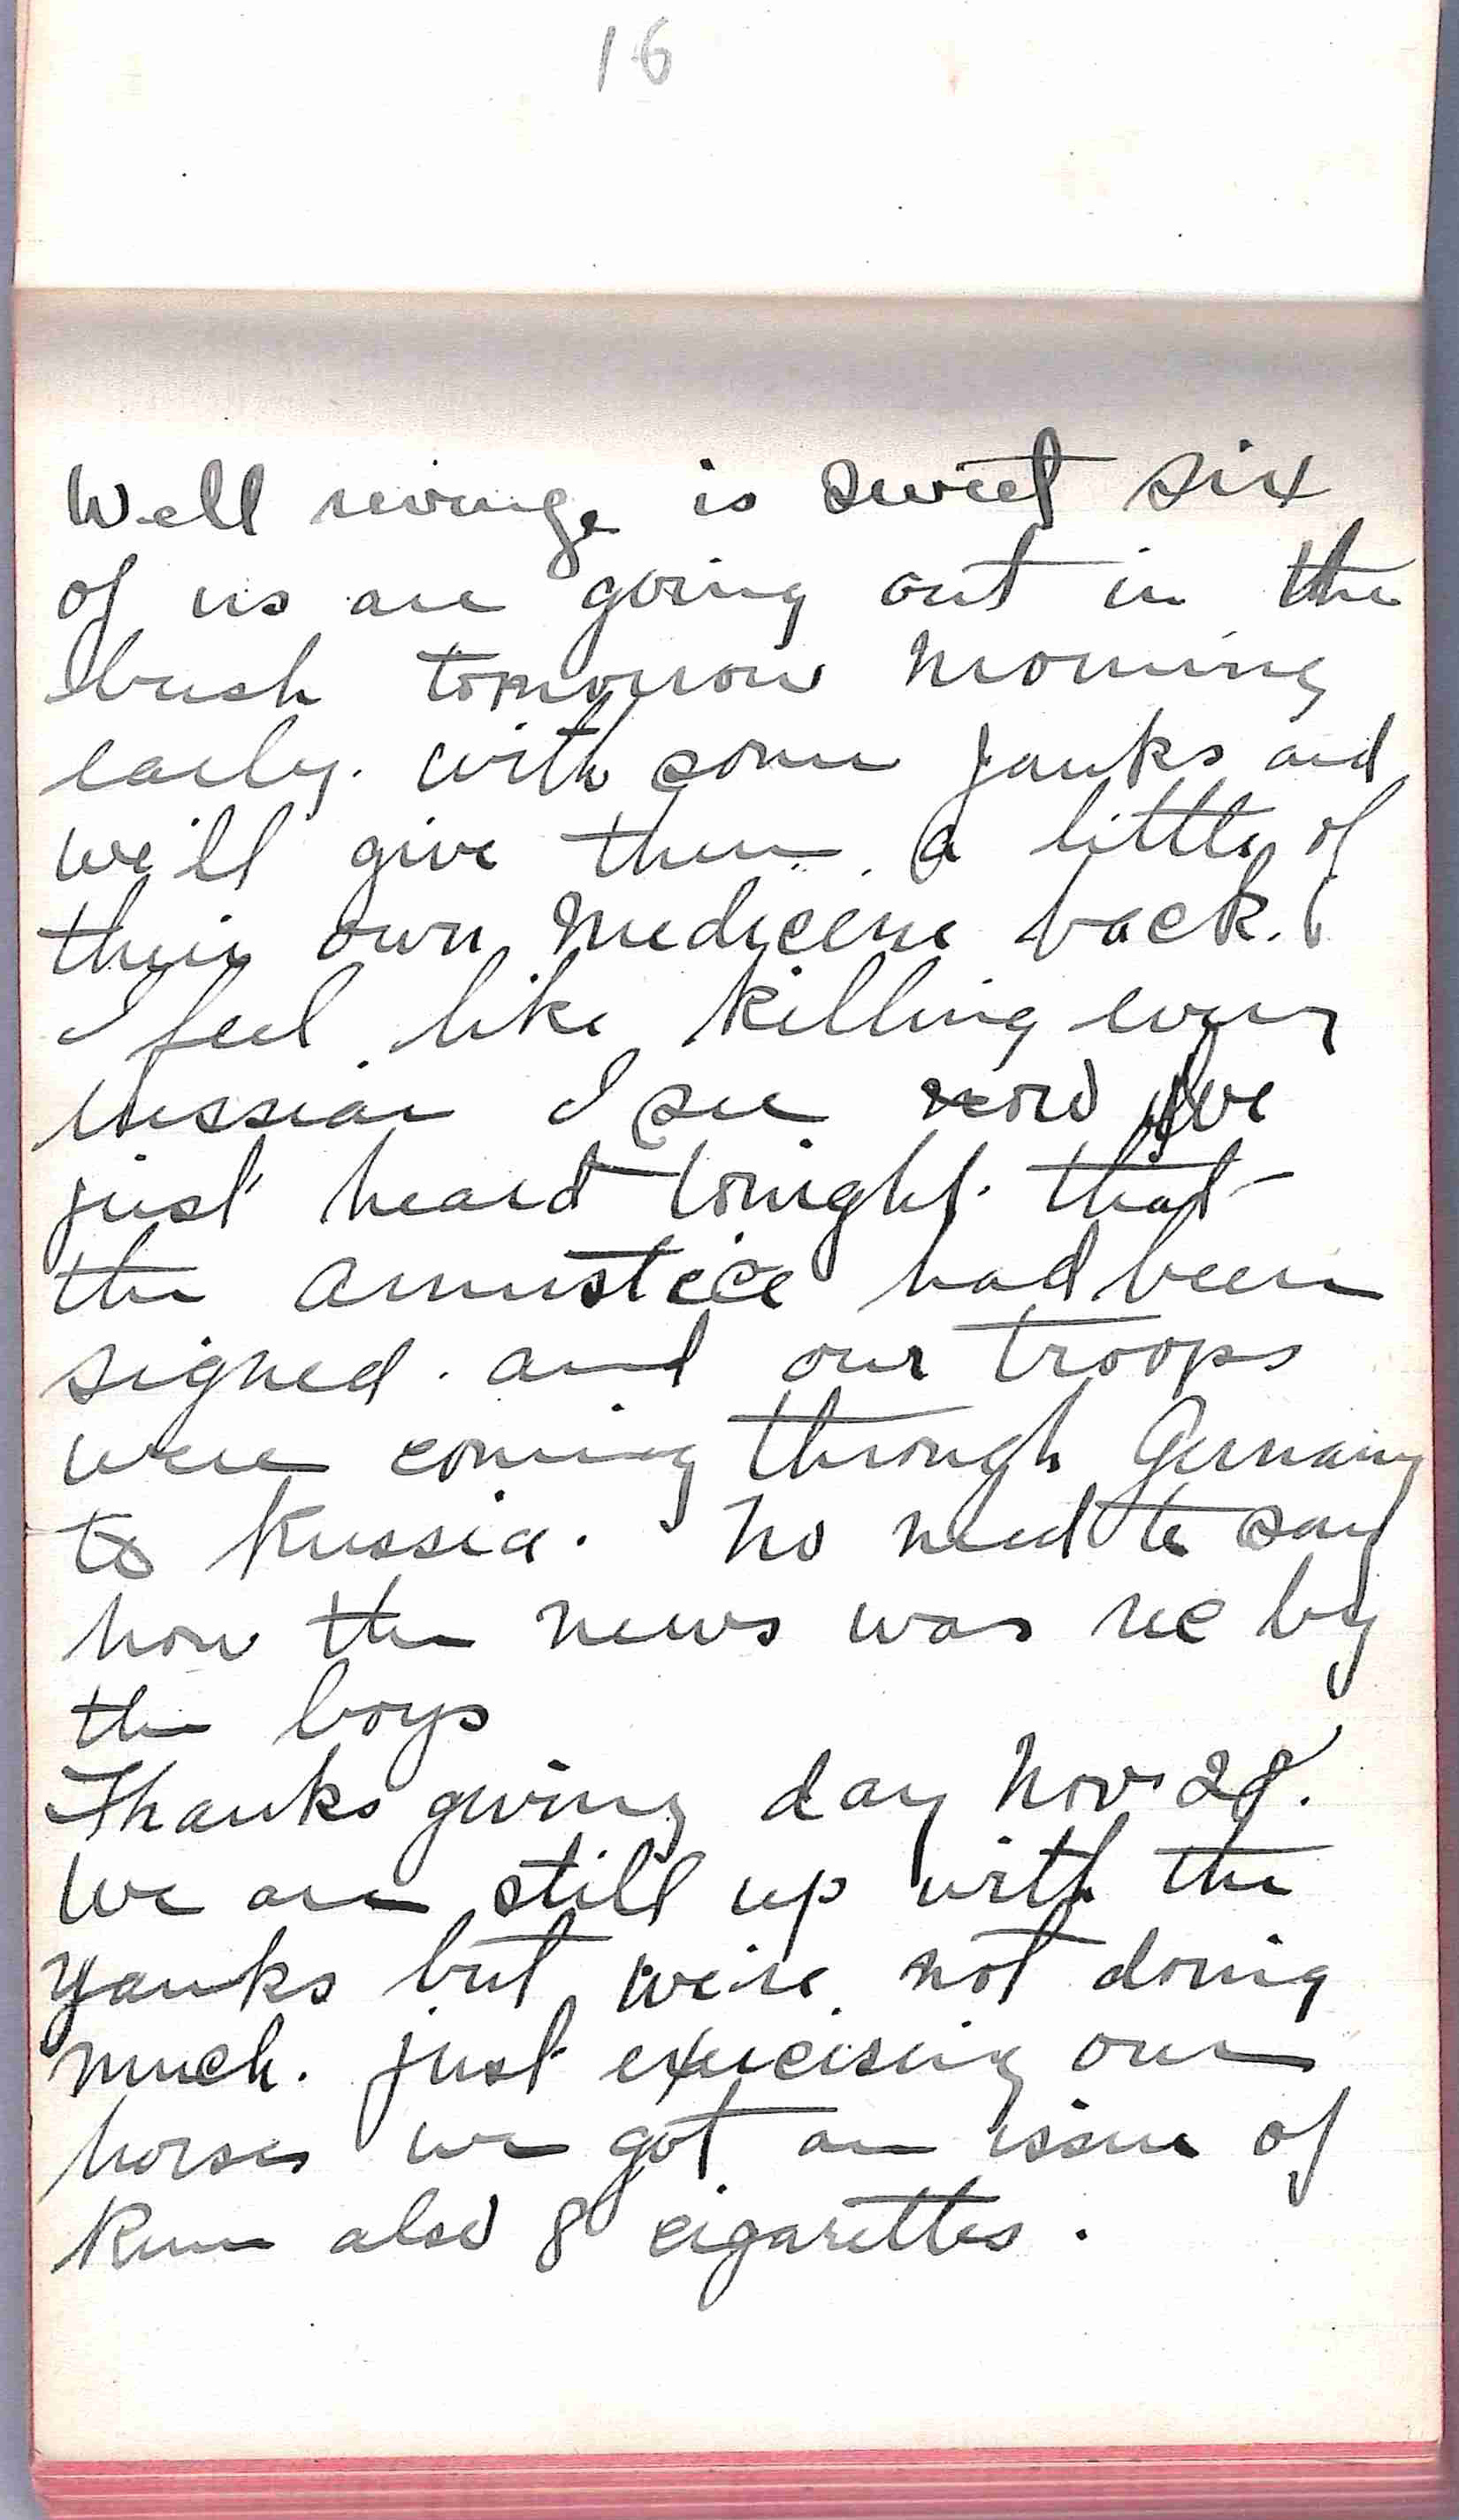 16
Well revenge is sweet six
of us are going out in the
bush tomorrow morning
early. with some yanks and
we'll give them a little of
their own medicene back.
I feel like killing every
russian I see now I've
just heard tonight. that
the armistice had been
signed. and our troops
were coming through Germany
to Russia. No need to say
how the news was rec by
the boys
Thanks giving day Nov 28.
We are still up with the
yanks but we're not doing
much. just exercising our
horses we got an issue of
Rum also 8 cigarettes.